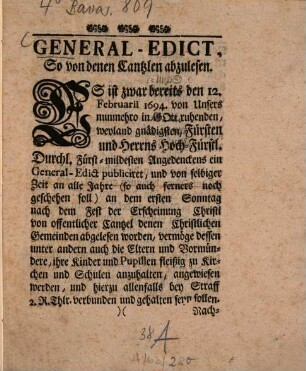 4° Bavar. 809
GENERAL-EDICT,
So von denen Cantzlen abzulesen.
ES ist zwar bereits den 12.
Februarii 1694. von Unsers
nunmehro in GOtt, ruhenden,
weyland gnädigsten, Fürsten
und Herrns Hoch-Fürstl.
Durchl. Fürst-mildesten Angedenckens ein
General-Edict publiciret, und von selbiger
Zeit an alle Jahre (so auch ferners noch
geschehen soll) an dem ersten Sonntag
nach dem Fest der Erscheinung Christi
von offentlicher Cantzel denen Christlichen
Gemeinden abgelesen worden, vermöge dessen
unter andern auch die Eltern und Vormün-
dere, ihre Kinder und Pupillen fleißig zu Kir-
chen und Schulen anzuhalten, angewiesen
werden, und hierzu allenfalls bey Straff
2. R.Thlr. verbunden und gehalten seyn sollen.
)( Nach-
38 A